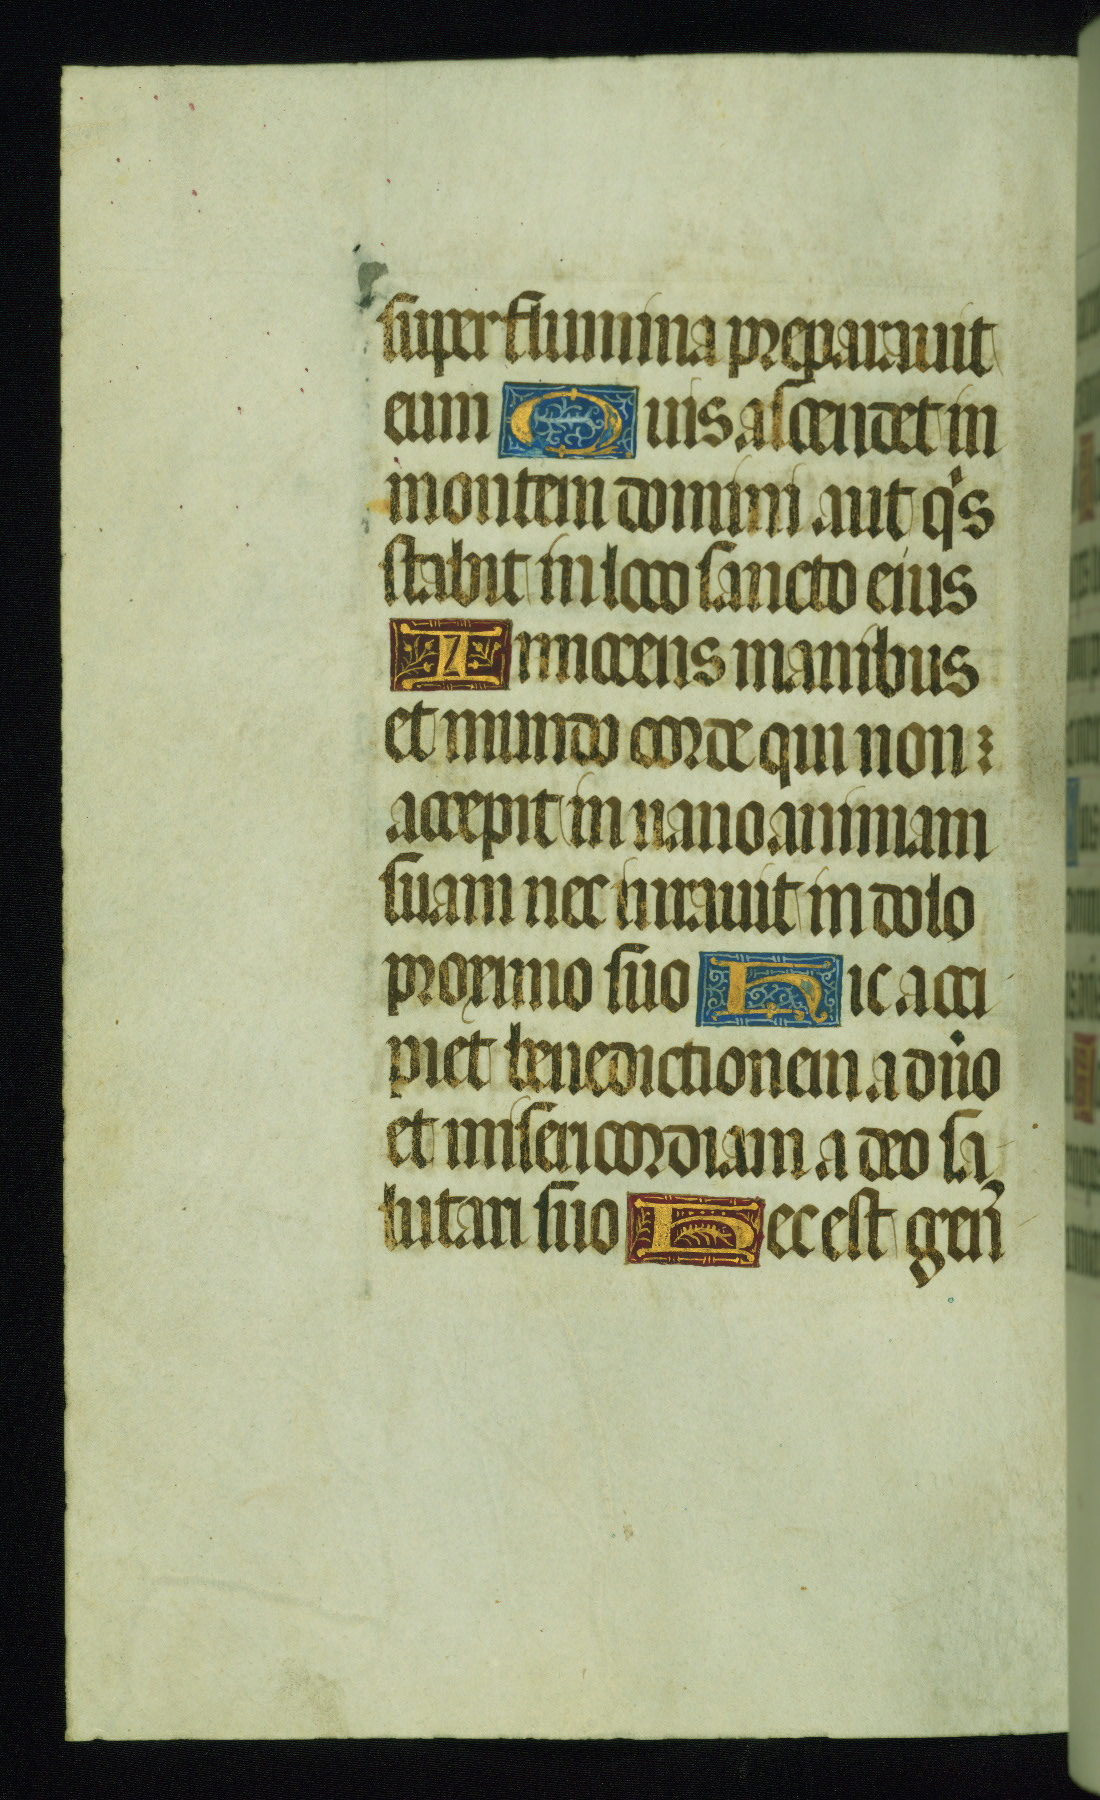 super flumina preparauit
eum Quis ascendet in
montem domini aut qͥs
stabit in loco sancto eius
Innocens manibus
et mundo corde qui non
accepit in uano animam
suam nec iurauit in dolo
proximo suo Hic acci
piet benedictionem a dn̄o
et misericordiam a deo sa
lutari suo Hec est gen̄